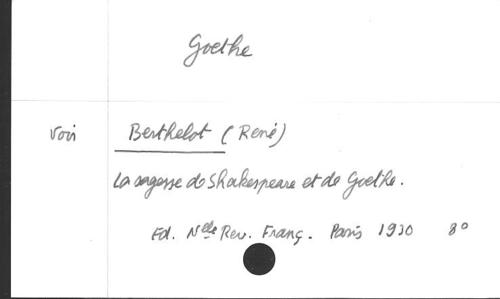 Goethe
Voir Berthelot (René)
La sagesse de Shakespeare et de Goethe.
Ed. Nelle Rev. Franç. Paris 1930 8°